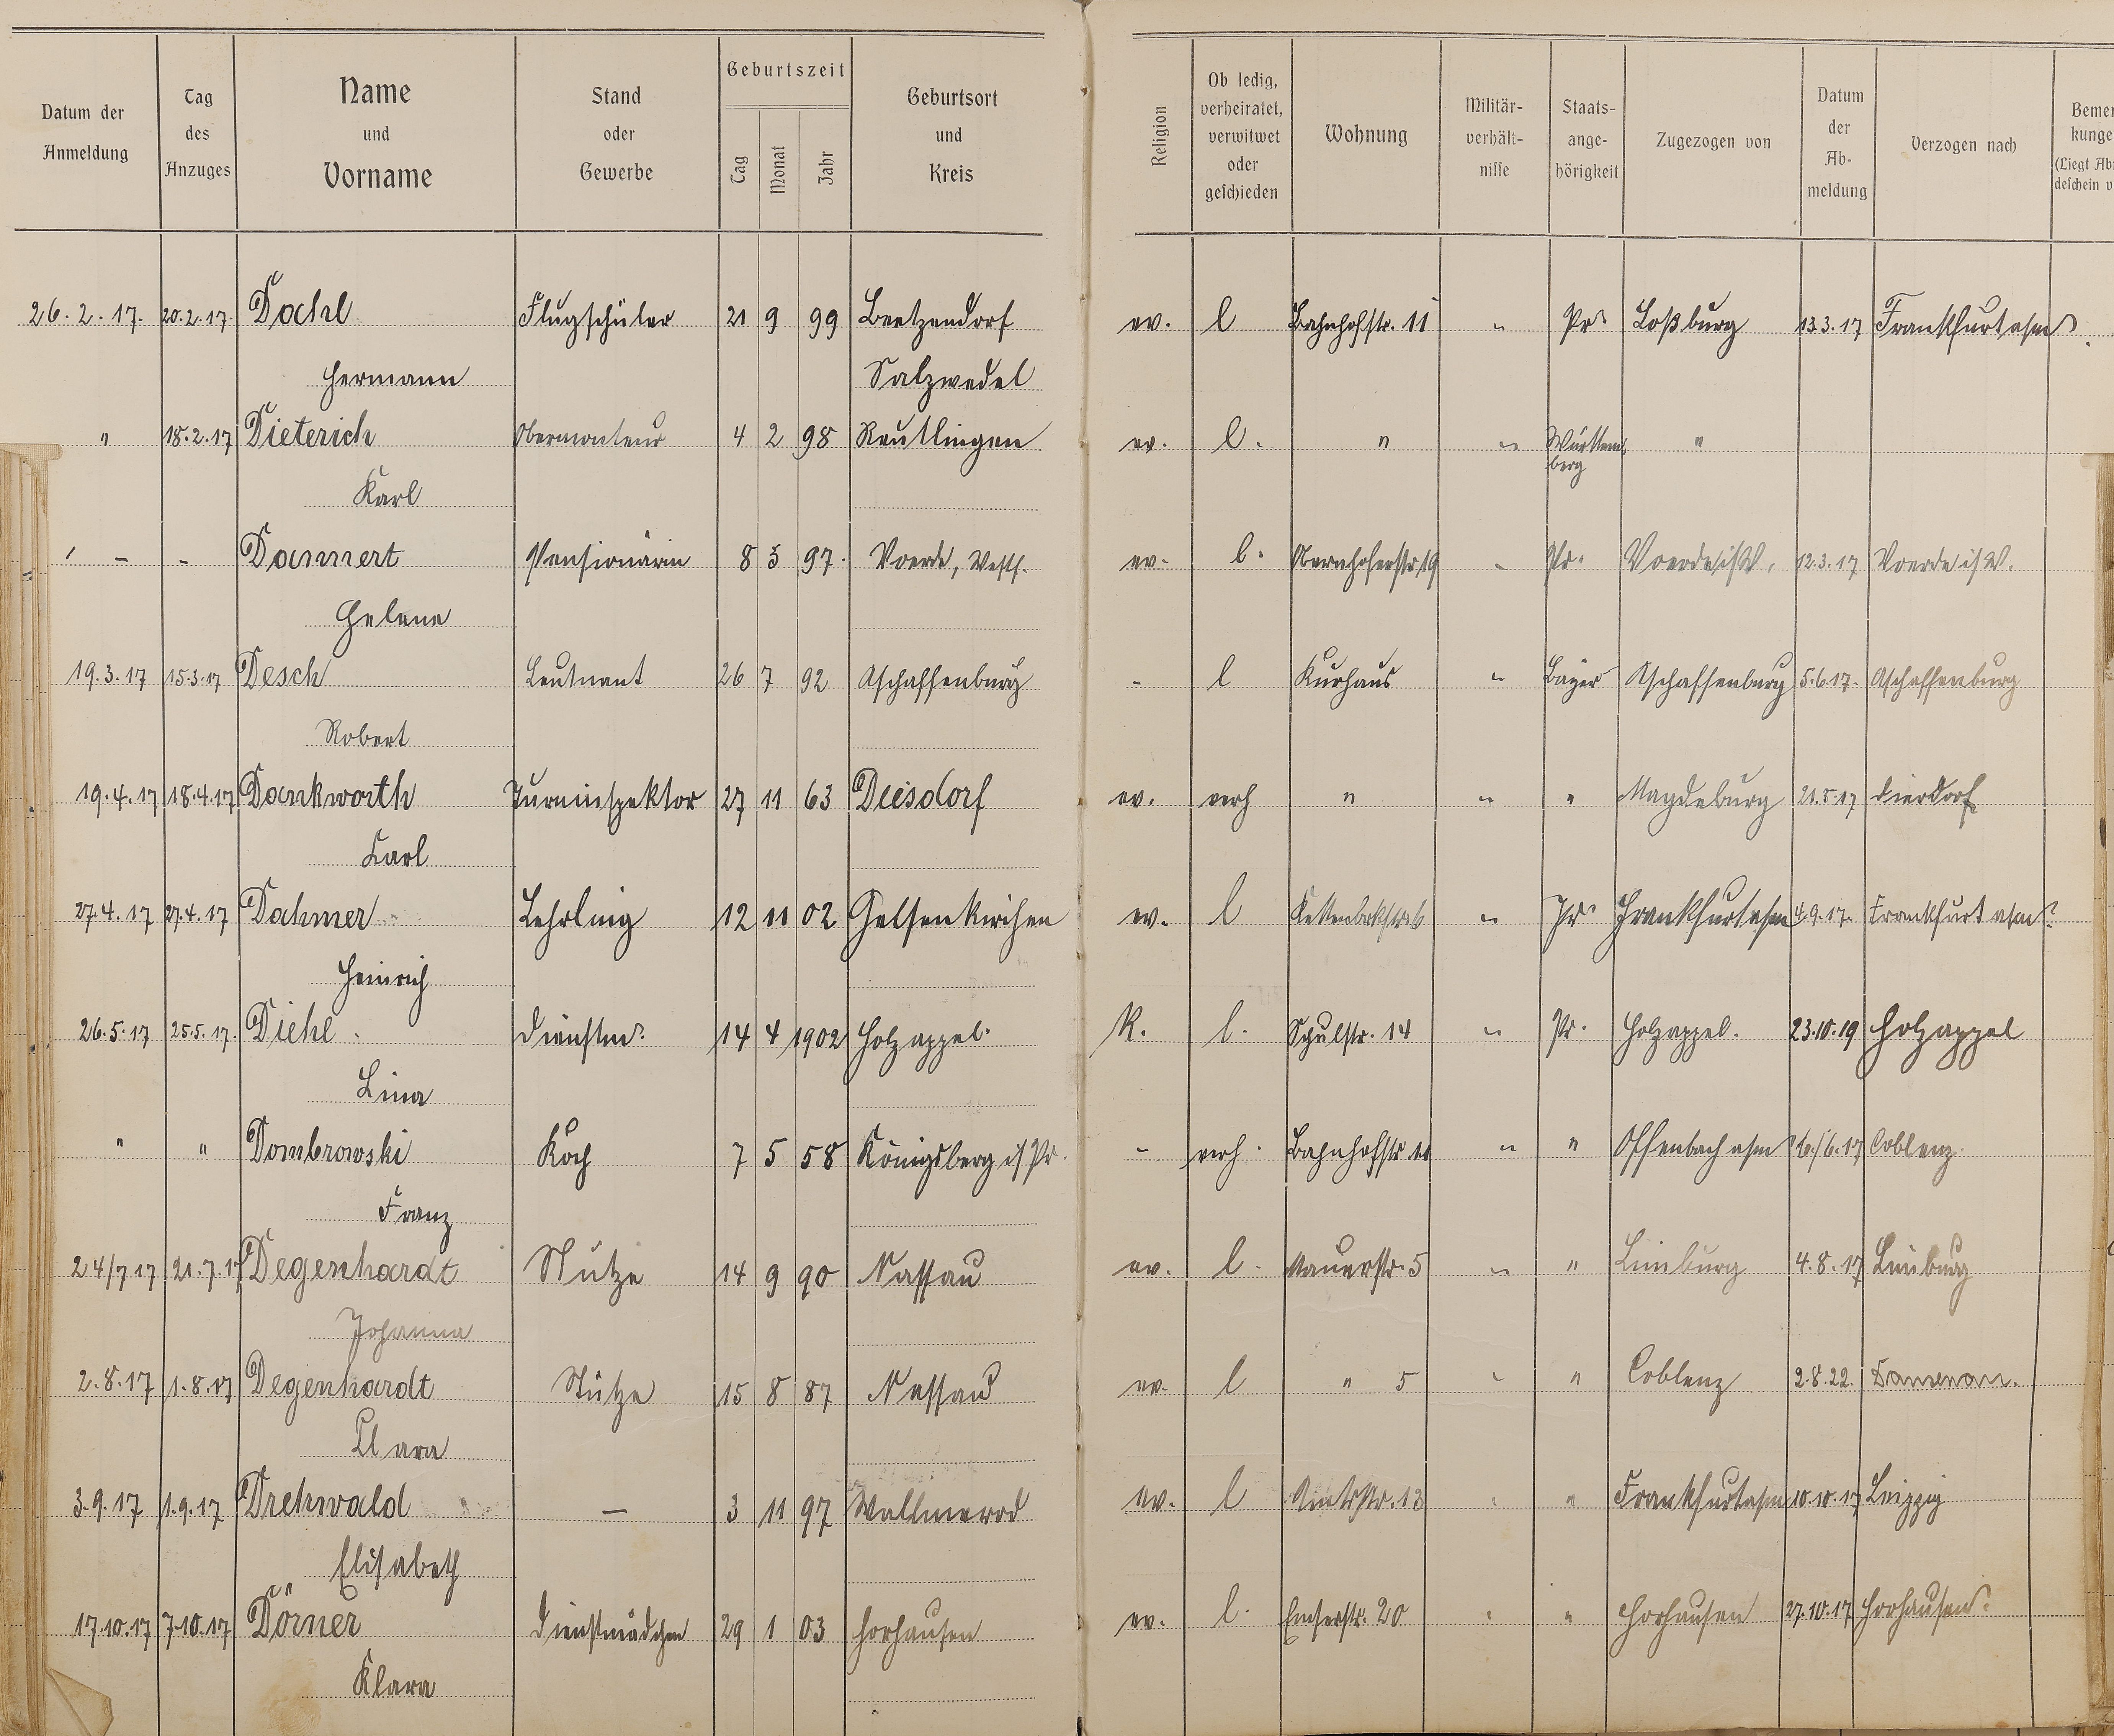 Datum der Anmeldung | Tag des Anzuges | Name und Vorname | Stand oder Gewerbe | Geburtszeit Tag Monat Jahr | Geburtsort und Kreis | Religion | Ob ledig, verheiratet, verwitwet oder geschieden | Wohnung | Militär-verhält-nisse | Staats-ange-hörigkeit | Zugezogen von | Datum der Ab-meldung | Verzogen nach | Bemer kunge (Liegt Ab deschein v
26.2.17. 20.2.17. Dachl Flugschüler 21 9 99 Beetzendorf ev. l Bahnhofstr. 11 " Pr. Loßburg 13.3.17 Frankfurt a/M
Hermann Salzwedel
" 18.2.17 Dieterich Obermonteur 4 2 98 Reutlingen ev. l. " " Württem berg "
Karl
" - - Dammert Pensionärin 8 3 97. Voerde, Westf. ev. l. 19 - Pr. Voerde i/W. 12.3.17 Voerde i/W.
Helene
19.3.17 15.3.17 Desch Leutnant 26 7 92 Aschaffenburg - l Kurhaus " Bayer Aschaffenburg 5.6.17. Aschaffenburg
Robert
19.4.17 18.4.17 Dankworth Turninspektor 27 11 63 Diesdorf ev. verh " " " Magdeburg 21.5.17 Dierdorf
Karl
27.4.17 27.4.17 Dahmer Lehrling 12 11 02 Gelsenkirchen ev. l " Pr. Frankfurt a/M 4.9.17. Frankfurt a/M
Heinrich
26.5.17 25.5.17. Diehl Dienstm. 14 4 1902 Holzappel. K. l. Schulstr. 14 " Pr. Holzappel. 23.10.19 Holzappel
Lina
" " Dombrowski Koch 7 5 58 Königsberg i/Pr. - verh. Bahnhofstr " " Offenbach a/M 16./6.17 Coblenz.
Franz
24/7 17 21.7.17 Degenhardt Stütze 14 9 90 Nassau ev. l. Mauerstr. 5 " " Limburg 4.8.17 Limburg
Johanna
2.8.17 1.8.17 Degenhardt Stütze 15 8 87 Nassau ev. l " 5 " " Coblenz 2.8.22. Dausenau.
Clara
3.9.17 1.9.17 Drehwald — 3 11 97 Wallmerod ev. l Amtsstr. 13 " " Frankfurt a/M 10.10.17 Leipzig
Elisabeth
17.10.17 7.10.17 Dörner Dienstmädchen 29 1 03 Horhausen ev. l. Emserstr. 20 " " Horhausen 27.10.17 Horhausen.
Klara